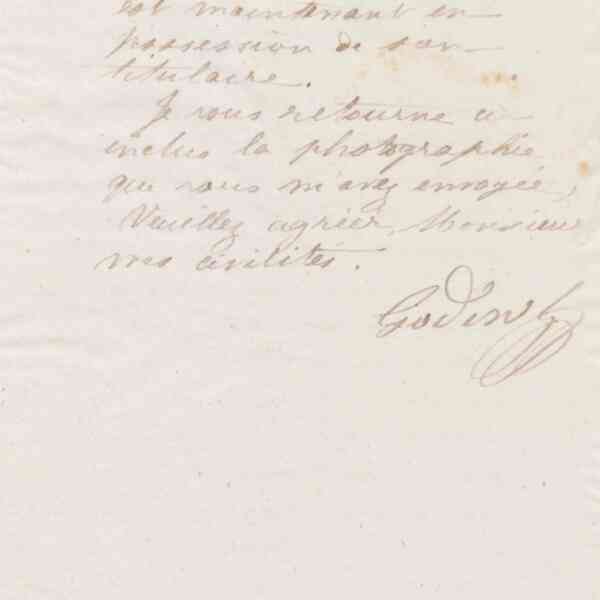 est maintenant en
possession de son
titulaire.
Je vous retourne ci-
inclus la photographie
que vous m'avez envoyée,
Veuillez agréer, Monsieur
mes civilités.
Godin